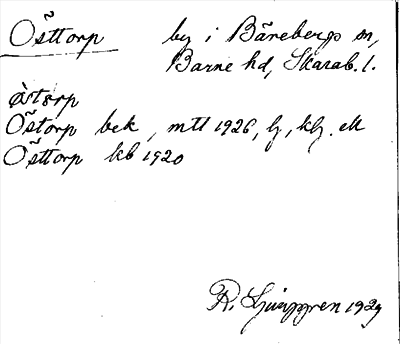 Östtorp by i Bärebergs sn,
Barne hd, Skarab. l.
àstørp
Östorp bek, mtl 1926, lj, klj. ell
Östtorp kb 1920
R. Ljunggren 1929